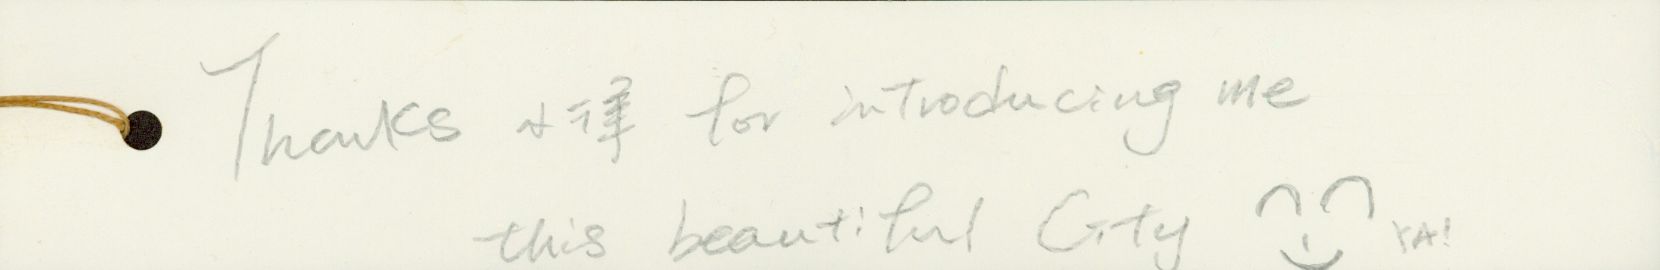 Thanks for introducing me
this beautiful City YA!